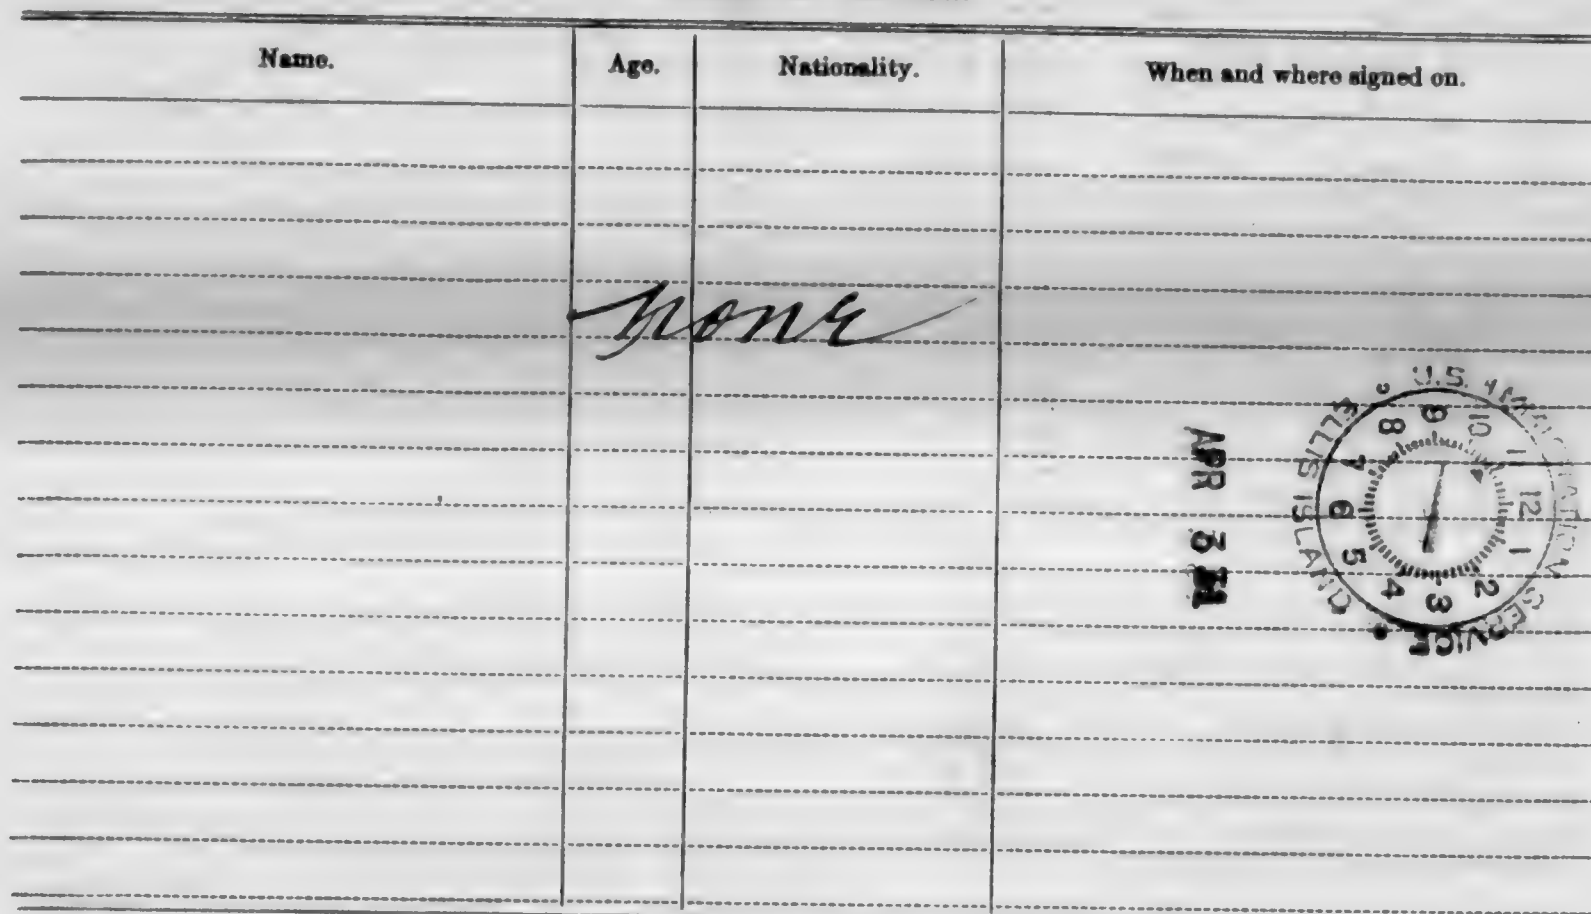 Name. Age. Nationality. When and where signed on.
none
U.S. IMMIGRATION SERVICE
ELLIS ISLAND
9 10 11 12 1 2 3 4 5 6 7 8
APR 3